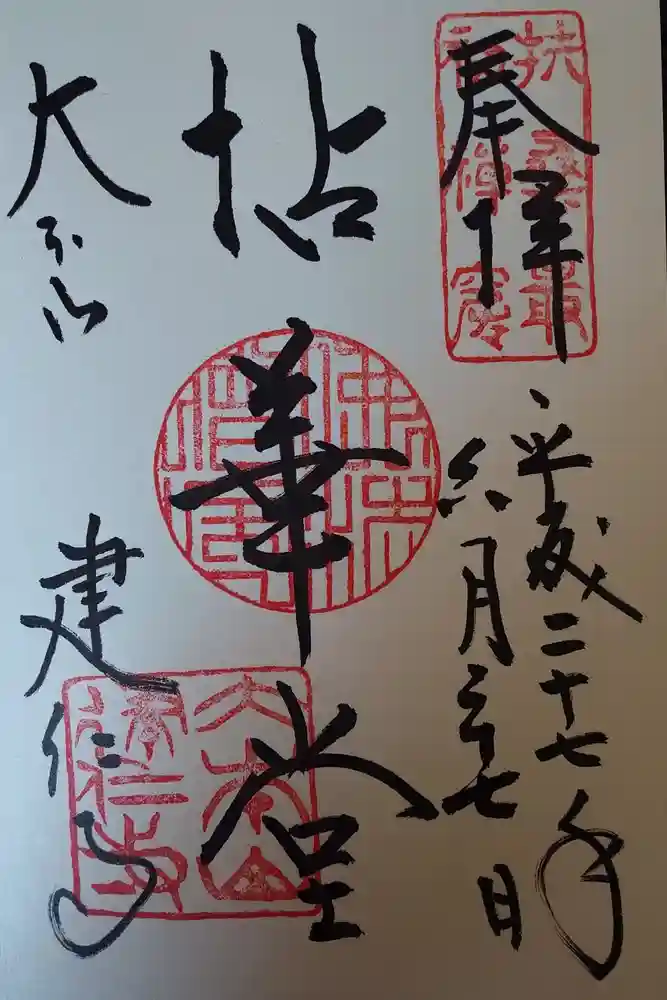 奉拝
扶桑最
初禅窟
平成二十七年
六月二十七日
拈華堂
大本山
建仁寺
大本山
建仁寺